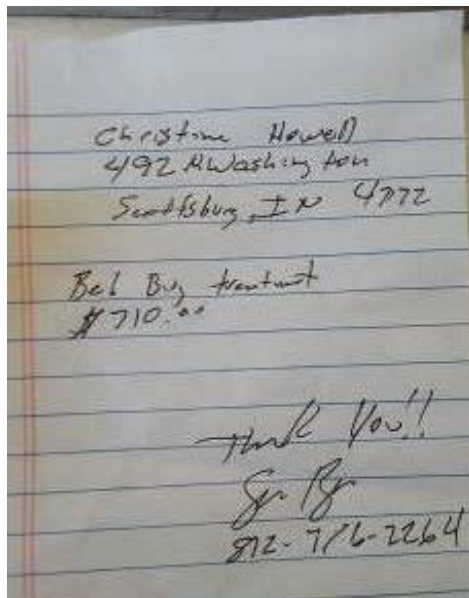 Christine Howell
492 N Washington
Scottsburg, IN
Bed Bug treatment
$710.00
Thank You!!